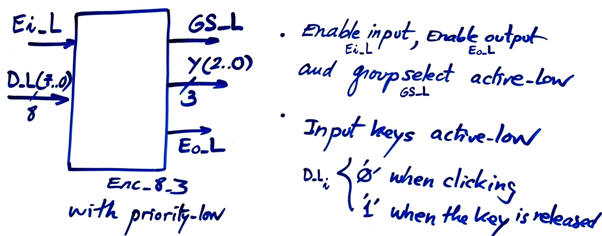 Ei_L
D_L(7..0)
8
GS_L
Y(2..0)
3
Eo_L
Enc_8_3
with priority-low
• Enable input, Enable output
Ei_L Eo_L
and group select active-low
GS_L
• Input keys active-low
D_Li { '0' when clicking
'1' when the key is released